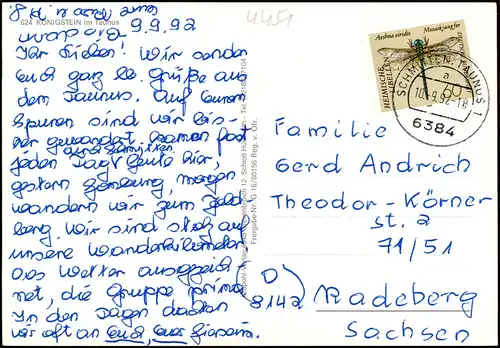 624 KÖNIGSTEIN im Taunus
9.9.92
Ihr Lieben! Wir senden
Euch ganz lb. Grüße aus
dem Taunus. Auf Euren
Spuren sind wir bis-
her gewandert. Kamen fast
jeden Tag
heute hier,
gestern morgen
wandern wir zum Feld-
berg. Wir sind stolz auf
unsere Wanderkilometer
Das Wetter ausgezeich-
net, die Gruppe prima
In den Tagen dachten
wir oft an Euch, Euer
Aeshna viridis Mosaikjungfer
HEIMISCHE
LIBELLEN
60
SCHMITTEN, TAUNUS 1
a
10.9.92-18
6384
Familie
Gerd Andrich
Theodor-Körner
st. 2
71/51
D)
8142 Radeberg
Sachsen
Freigabe-Nr. G 16/60156 Reg. v. Ofr.